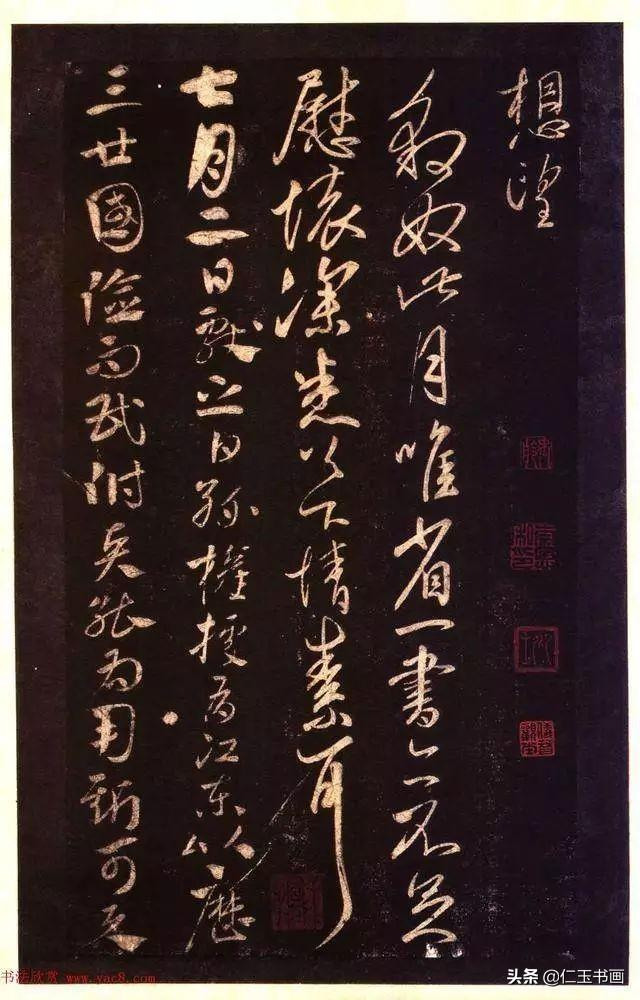 想望
豹奴此月唯省一書亦不足
慰懷以下情素耳
七月二日獻之白孫權據有江東以歷
三世國險而民附賢能為用斯可
书法欣赏 www.yac8.com
头条 @仁玉书画